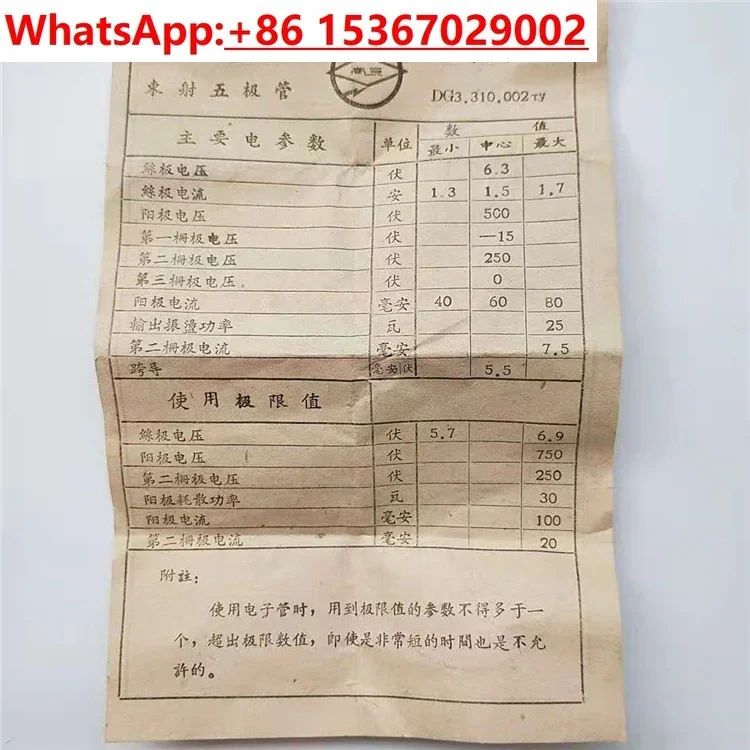 WhatsApp:+86 15367029002
束射五极管 DG3.310.002ТУ
主要电参数 单位 数值
最小 中心 最大
絲极电压 伏 6.3
絲极电流 安 1.3 1.5 1.7
阳极电压 伏 500
第一栅极电压 伏 —15
第二栅极电压 伏 250
第三栅极电压 伏 0
阳极电流 毫安 40 60 80
輸出振盪功率 瓦 25
第二栅极电流 毫安 7.5
跨导 毫安/伏 5.5
使用极限值
絲极电压 伏 5.7 6.9
阳极电压 伏 750
第二栅极电压 伏 250
阳极耗散功率 瓦 30
阳极电流 毫安 100
第二栅极电流 毫安 20
附註：
使用电子管时，用到极限值的参数不得多于一
个，超出极限数值，即使是非常短的时間也是不允
許的。